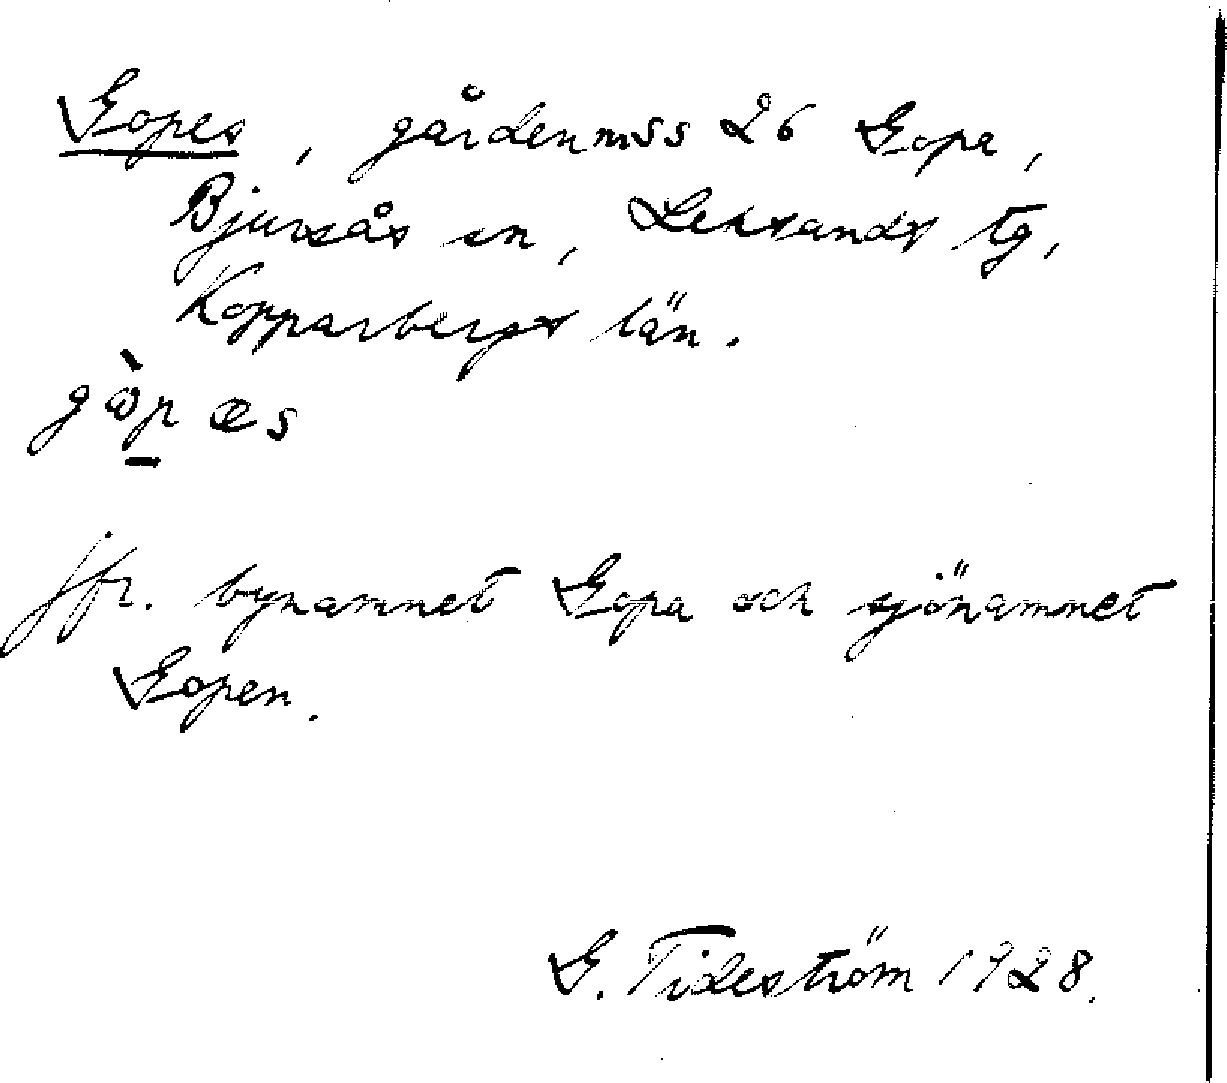 Gopes, gårdennss 26 Gopa,
Bjursås sn, Leksands tg,
Kopparbergs län.
gòp æs
jfr. bynamnet Gopa och sjönamnet
Gopen.
G. Tideström 1928.